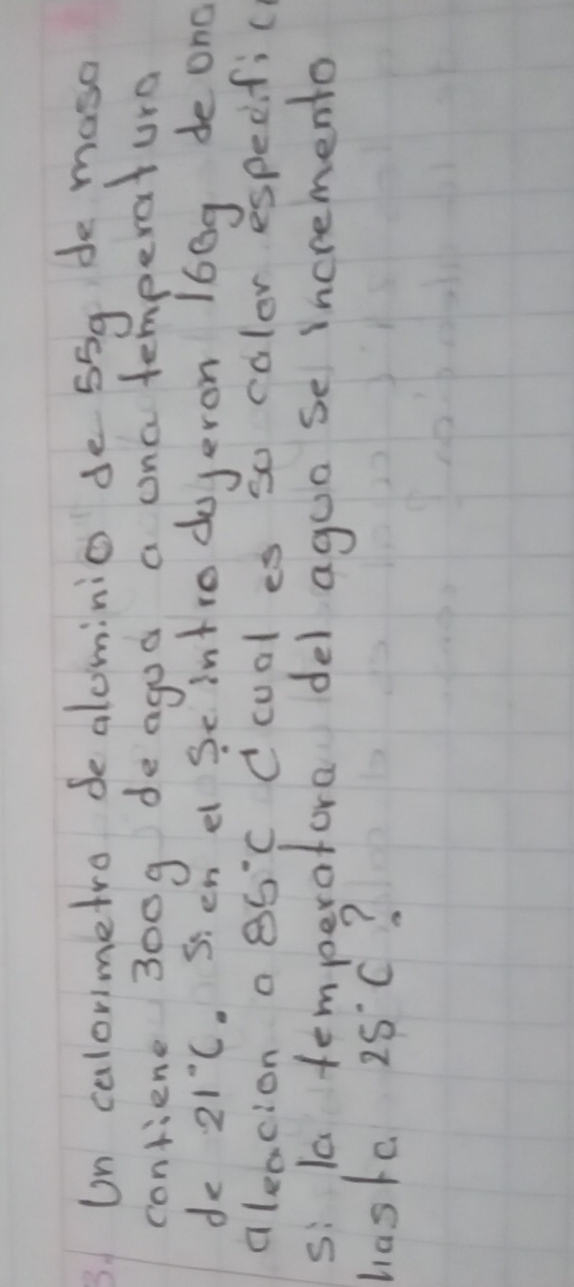 3. Un calorimetro de aluminio de 55g de masa
contiene 300g de agua a una temperatura
de 21°C. Si en el se introdujeron 160g de una
aleacion a 85°C C cual es su calor especific
si la temperatura del agua se incremento
hasta 25°C?